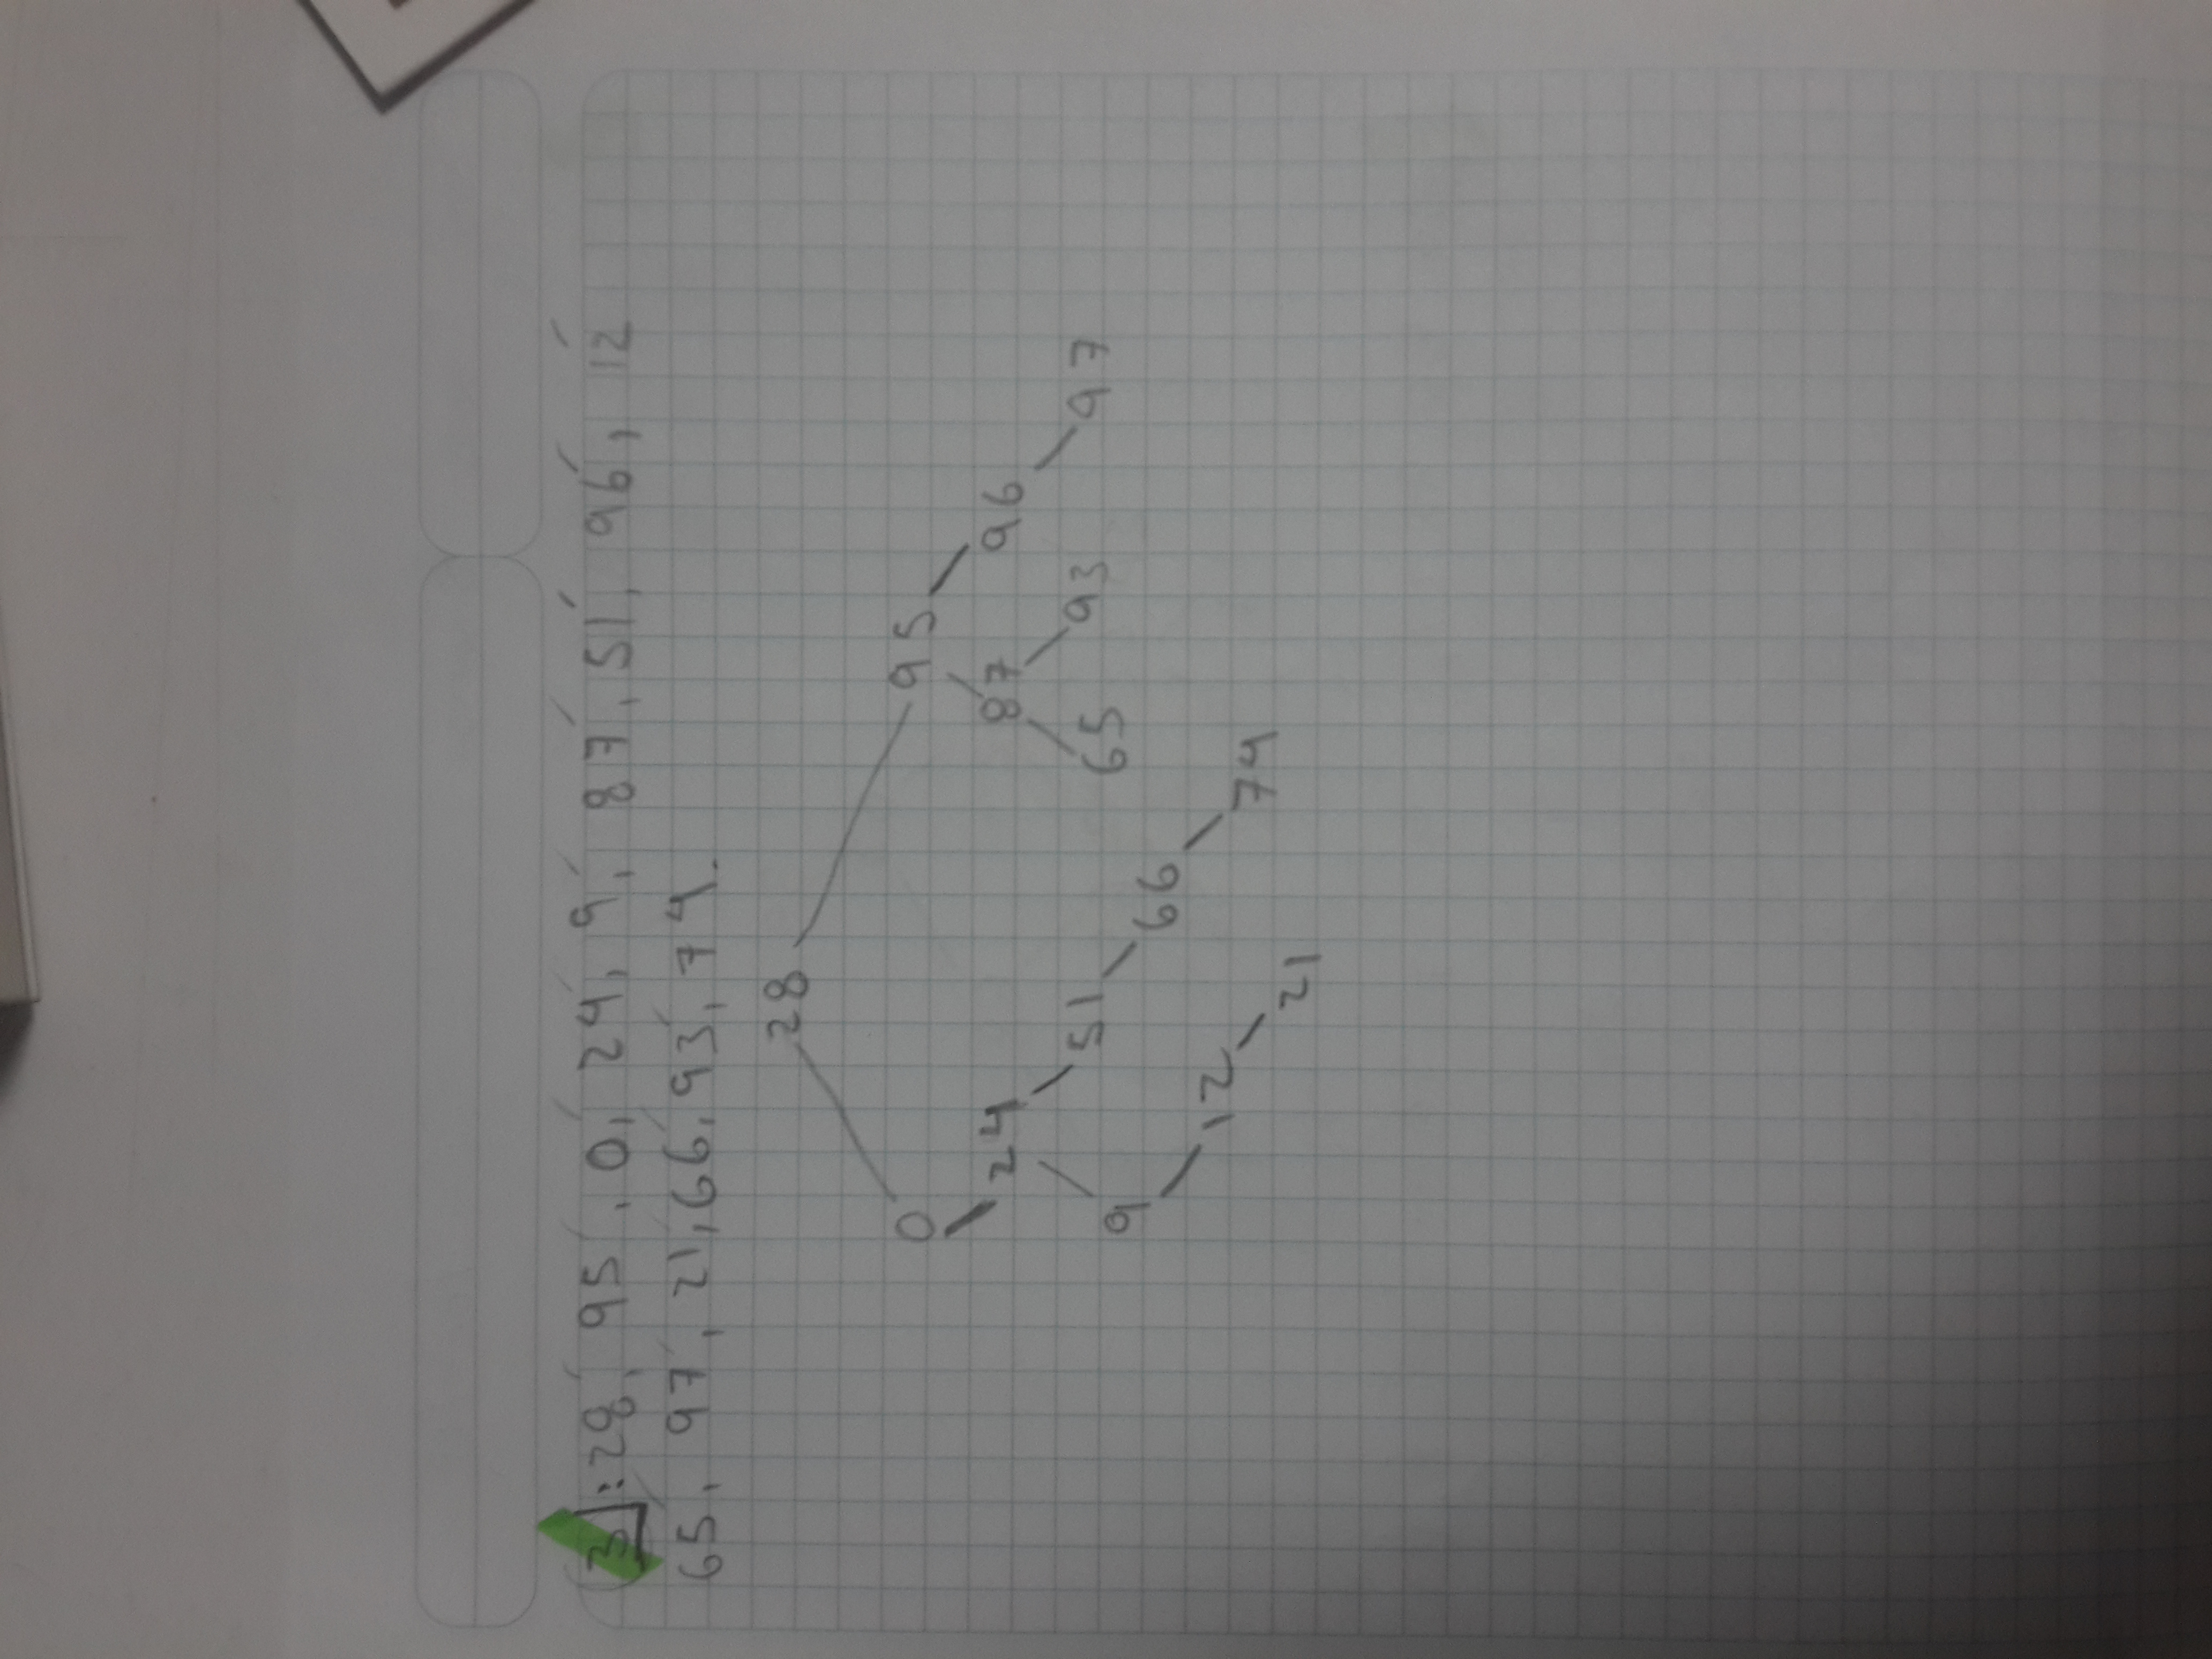 3: 28, 95, 0, 24, 9, 87, 51, 96, 12
65, 97, 21, 66, 93, 74.
28
0 95
24 87 96
9 51 65 93 97
12 66
21 74